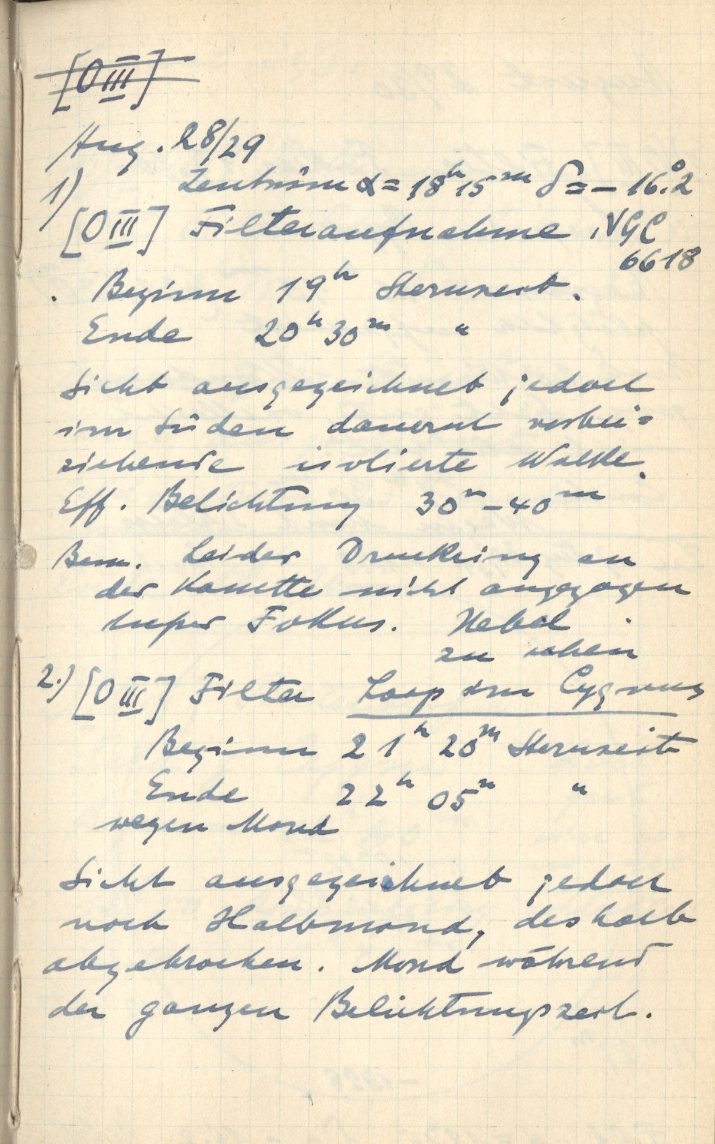 [O III]
Aug. 28/29
1) Zentrum α = 18h 15m δ = – 16.°2
[O III] Filteraufnahme NGC
6618
Beginn 19h Sternzeit.
Ende 20h 30m "
Sicht ausgezeichnet jedoch
im Süden dauernd vorbei=
ziehende isolierte Wolke.
Eff. Belichtung 30m – 40m
Bem. Leider Druckring an
der Kasette nicht angezogen
Fokus. Nebel
zu sehen
2.) [O III] Filter Loop im Cygnus
Beginn 21h 20m Sternzeit
Ende 22h 05m "
wegen Mond
Sicht ausgezeichnet jedoch
noch Halbmond, deshalb
abgebrochen. Mond während
der ganzen Belichtungszeit.